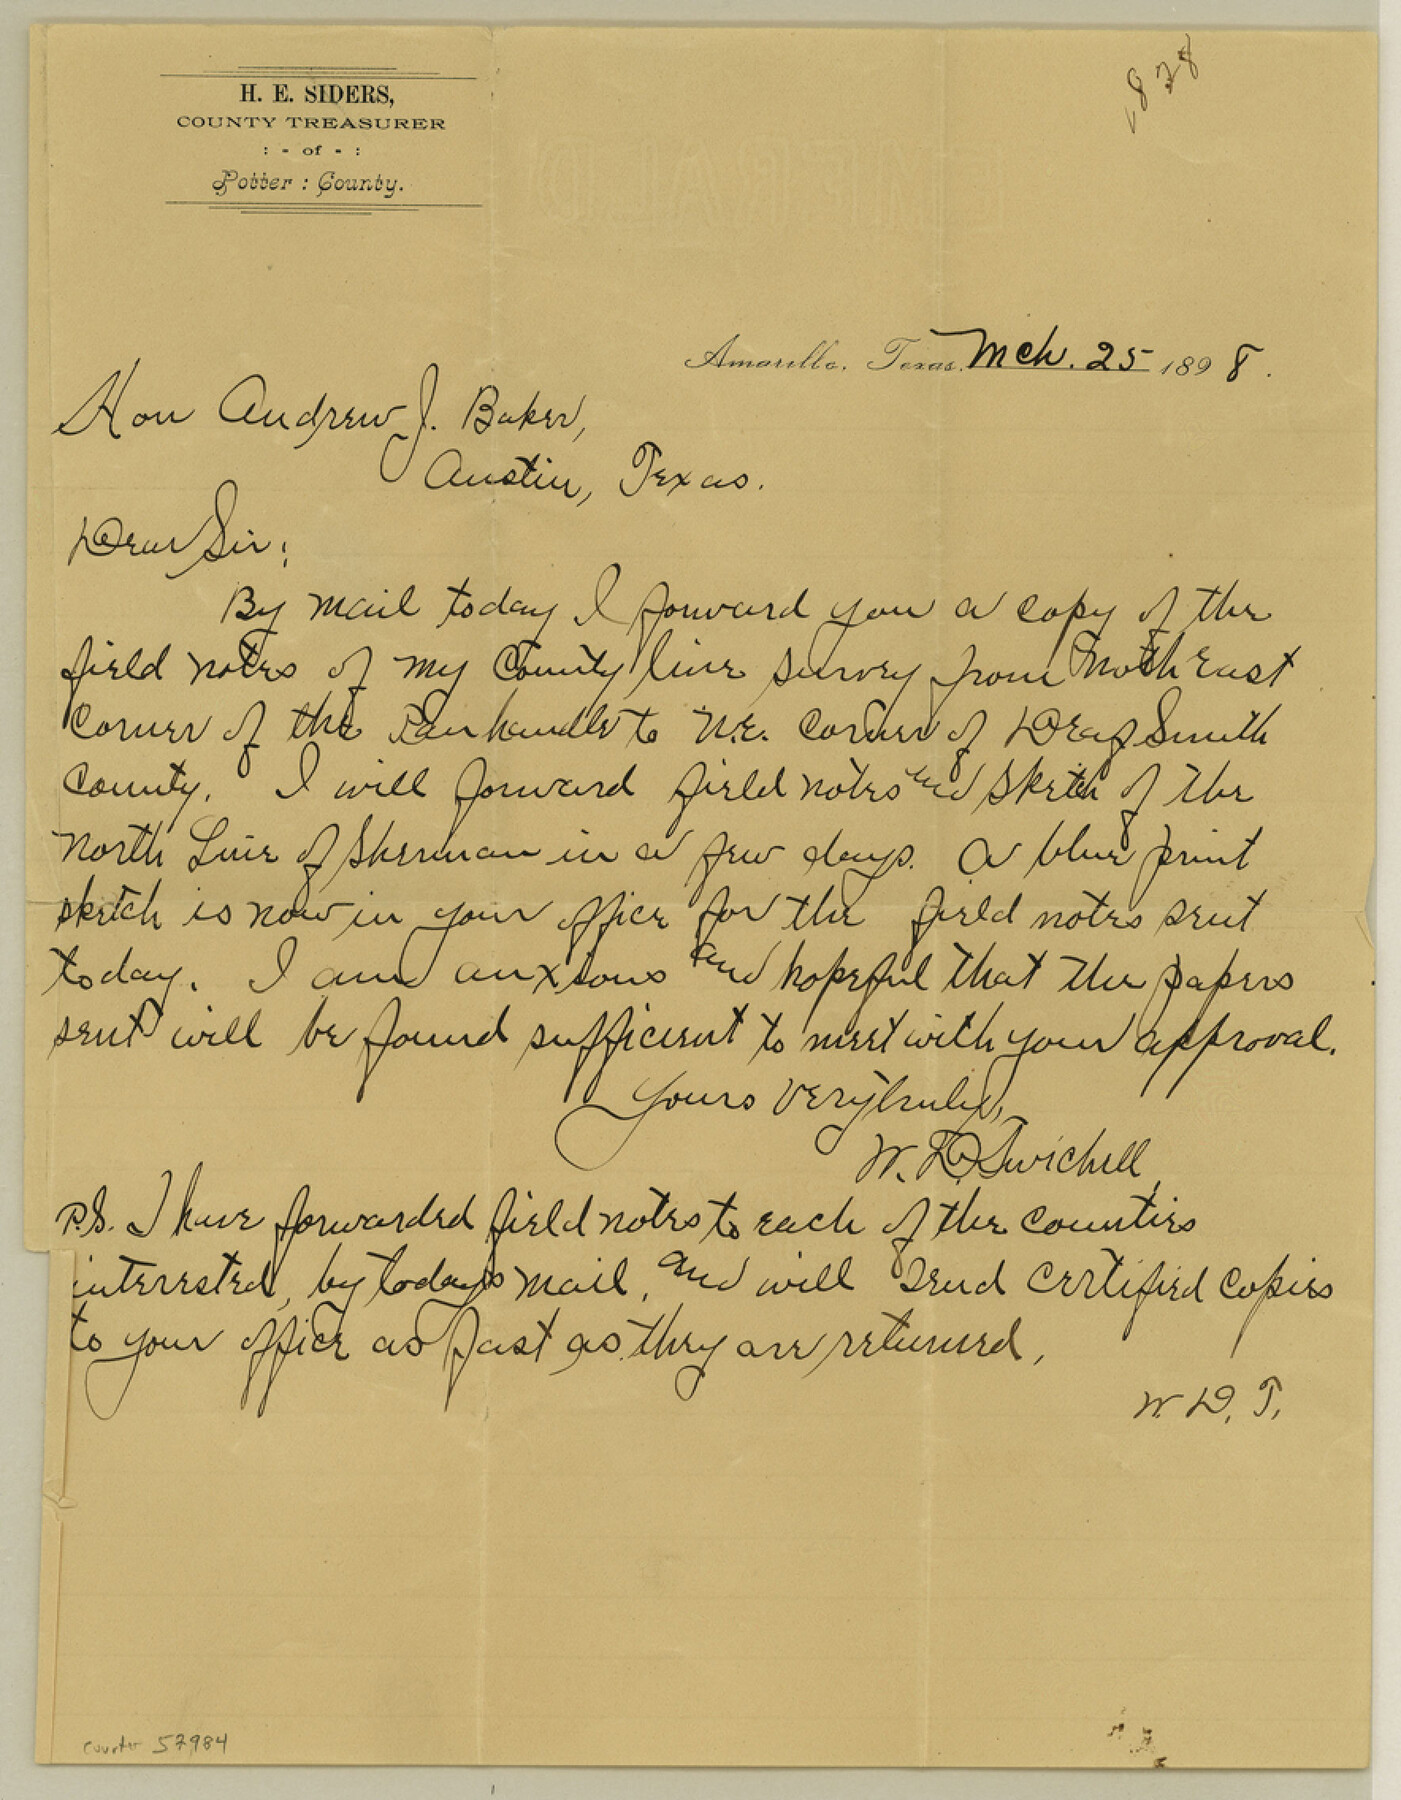 1828
H. E. SIDERS,
COUNTY TREASURER
: - of - :
Potter : County.
Amarillo, Texas, Mch. 25 1898.
Hon Andrew J. Baker,
Austin, Texas.
Dear Sir;
By mail today I forward you a copy of the
field notes of my County line survey from North East
Corner of the Panhandle to N.E. Corner of Deaf Smith
County. I will forward field notes and sketch of the
North Line of Sherman in a few days. A blue print
sketch is now in your office for the field notes sent
today. I am anxious and hopeful that the papers
sent will be found sufficient to meet with your approval.
Yours very truly,
W. D. Twichell
P.S. I have forwarded field notes to each of the counties
interested, by today's mail, and will send certified copies
to your office as fast as they are returned,
W. D. T.
counter 57984